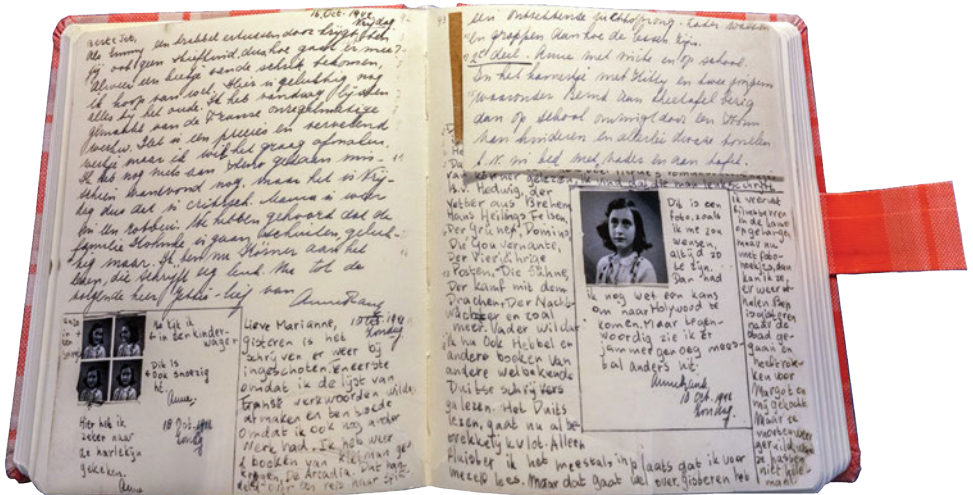 16 Oct. 1942
Vrijdag
fijn ook geen stiefkind, dus hoe gaat er mee?
Alweer een beetje van de schrik bekomen,
ik hoop van wel. Hier is gelukkig nog
alles bij het oude. Ik heb vandaag lijsten
gemaakt van de Franse onregelmatige
werkw. Het is een precies en vervelend
werkje maar ik wil het graag afmaken.
Ik heb nog niets aan Steno gedaan mis-
schien vanavond nog. Maar het is Vrij-
dag dus dat is critisch. Mama is weer
We hebben gehoord dat de
familie is gaan schuilen, geluk-
kig maar. Ik ben nu Körner aan het
lezen, die schrijft erg leuk. Nu tot de
volgende keer van
Anne Frank
Nu kijk ik
in den kinder-
wagen
Dit is
ook snoezig
hè.
Anne.
Hier heb ik
zeker naar
de harlekijn
gekeken.
Anne
18 Oct. 1942
Zondag
Lieve Marianne,
18 Oct. 1942
Zondag
gisteren is het
schrijven er weer bij
ingeschoten. Eneerste
omdat ik de lijst van
Franse werkwoorden wilde
afmaken en ten 2oede
omdat ik ook nog ander
werk had. Ik heb weer
2 boeken van Kleiman ge-
kregen, De Arcadia, Dat han-
delt over een reis naar Spits-
een ontzettende luchtsprong. Later
en grappen aan hoe de lessen zijn.
2e deel. Anne met mils en op school.
In het kamertje met Hilly en twee jongens
waaronder Bernd aan theetafel bezig
dan op school omringd door een
van kinderen en allerlei dwaze tonelen
b.v. in bed met vader en aan tafel.
van Körner gelezen. Ik vind dat die man leuk schrijft.
b.v. Hedwig, der
Vetter aus Bremen,
Hans Heilings Felsen,
Der Grüne Domino,
Die Gouvernante,
Der Vierjährige
Posten, Die Sühne,
Der Kampf mit dem
Drachen, Der Nacht-
wächter en zoal
meer. Vader wil dat
ik nu ook Hebbel en
andere boeken van
andere welbekende
Duitse schrijvers
ga lezen. Het Duits
lezen, gaat nu al be-
trekkelijk vlot. Alleen
fluister ik het meestal, in plaats dat ik voor
mezelf lees. Maar dat gaat wel over. Gisteren heb
Dit is een
foto, zoals
ik me zou
wensen,
altijd zo
te zijn.
Dan had
ik nog wel een kans
om naar Holywood te
komen. Maar tegen-
woordig zie ik er
jammer genoeg mees-
tal anders uit.
Anne Frank.
18 Oct. 1942
Zondag.
ik vreest
filmsterren
in de kast
opgehangen
maar nu
met foto-
hoekjes, dan
kan ik ze,
er weer af
halen. Bep
is gisteren
naar de
stad ge-
gaan en
heeft rok-
ken voor
Margot en
mij gekocht.
Maar ze
moeten weer
geruild want
ze passen
niet hele-
maal